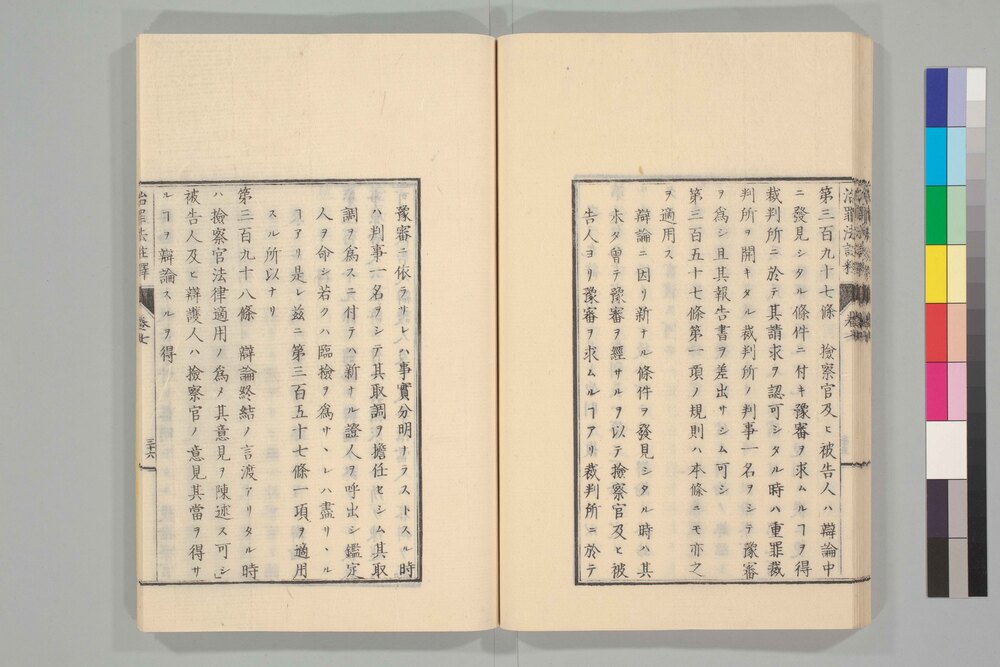 第三百九十七條 檢察官及ヒ被告人ハ辯論中
ニ發見シタル條件ニ付キ豫審ヲ求ムルヿヲ得
裁判所ニ於テ其請求ヲ認可シタル時ハ重罪裁
判所ヲ開キタル裁判所ノ判事一名ヲシテ豫審
ヲ爲シ且其報告書ヲ差出サシム可シ
第三百五十七條第一項ノ規則ハ本條ニモ亦之
ヲ適用ス
辯論ニ因リ新ナル條件ヲ發見シタル時ハ其
未タ曾テ豫審ヲ經サルヲ以テ檢察官及ヒ被
告人ヨリ豫審ヲ求ムルヿアリ裁判所ニ於テ
豫審ニ依ラサレハ事實分明ナラストスル時
ハ判事一名ヲシテ其取調ヲ擔任セシム其取
調ヲ爲スニ付テハ新ナル證人ヲ呼出シ鑑定
人ヲ命シ若クハ臨檢ヲ爲サヽレハ盡サヽル
ヿアリ是レ茲ニ第三百五十七條一項ヲ適用
スル所以ナリ
第三百九十八條 辯論終結ノ言渡アリタル時
ハ檢察官法律適用ノ爲メ其意見ヲ陳述ス可シ
被告人及ヒ辯護人ハ檢察官ノ意見其當ヲ得サ
ルヿヲ辯論スルヲ得
治罪法註釋 卷七 三十六